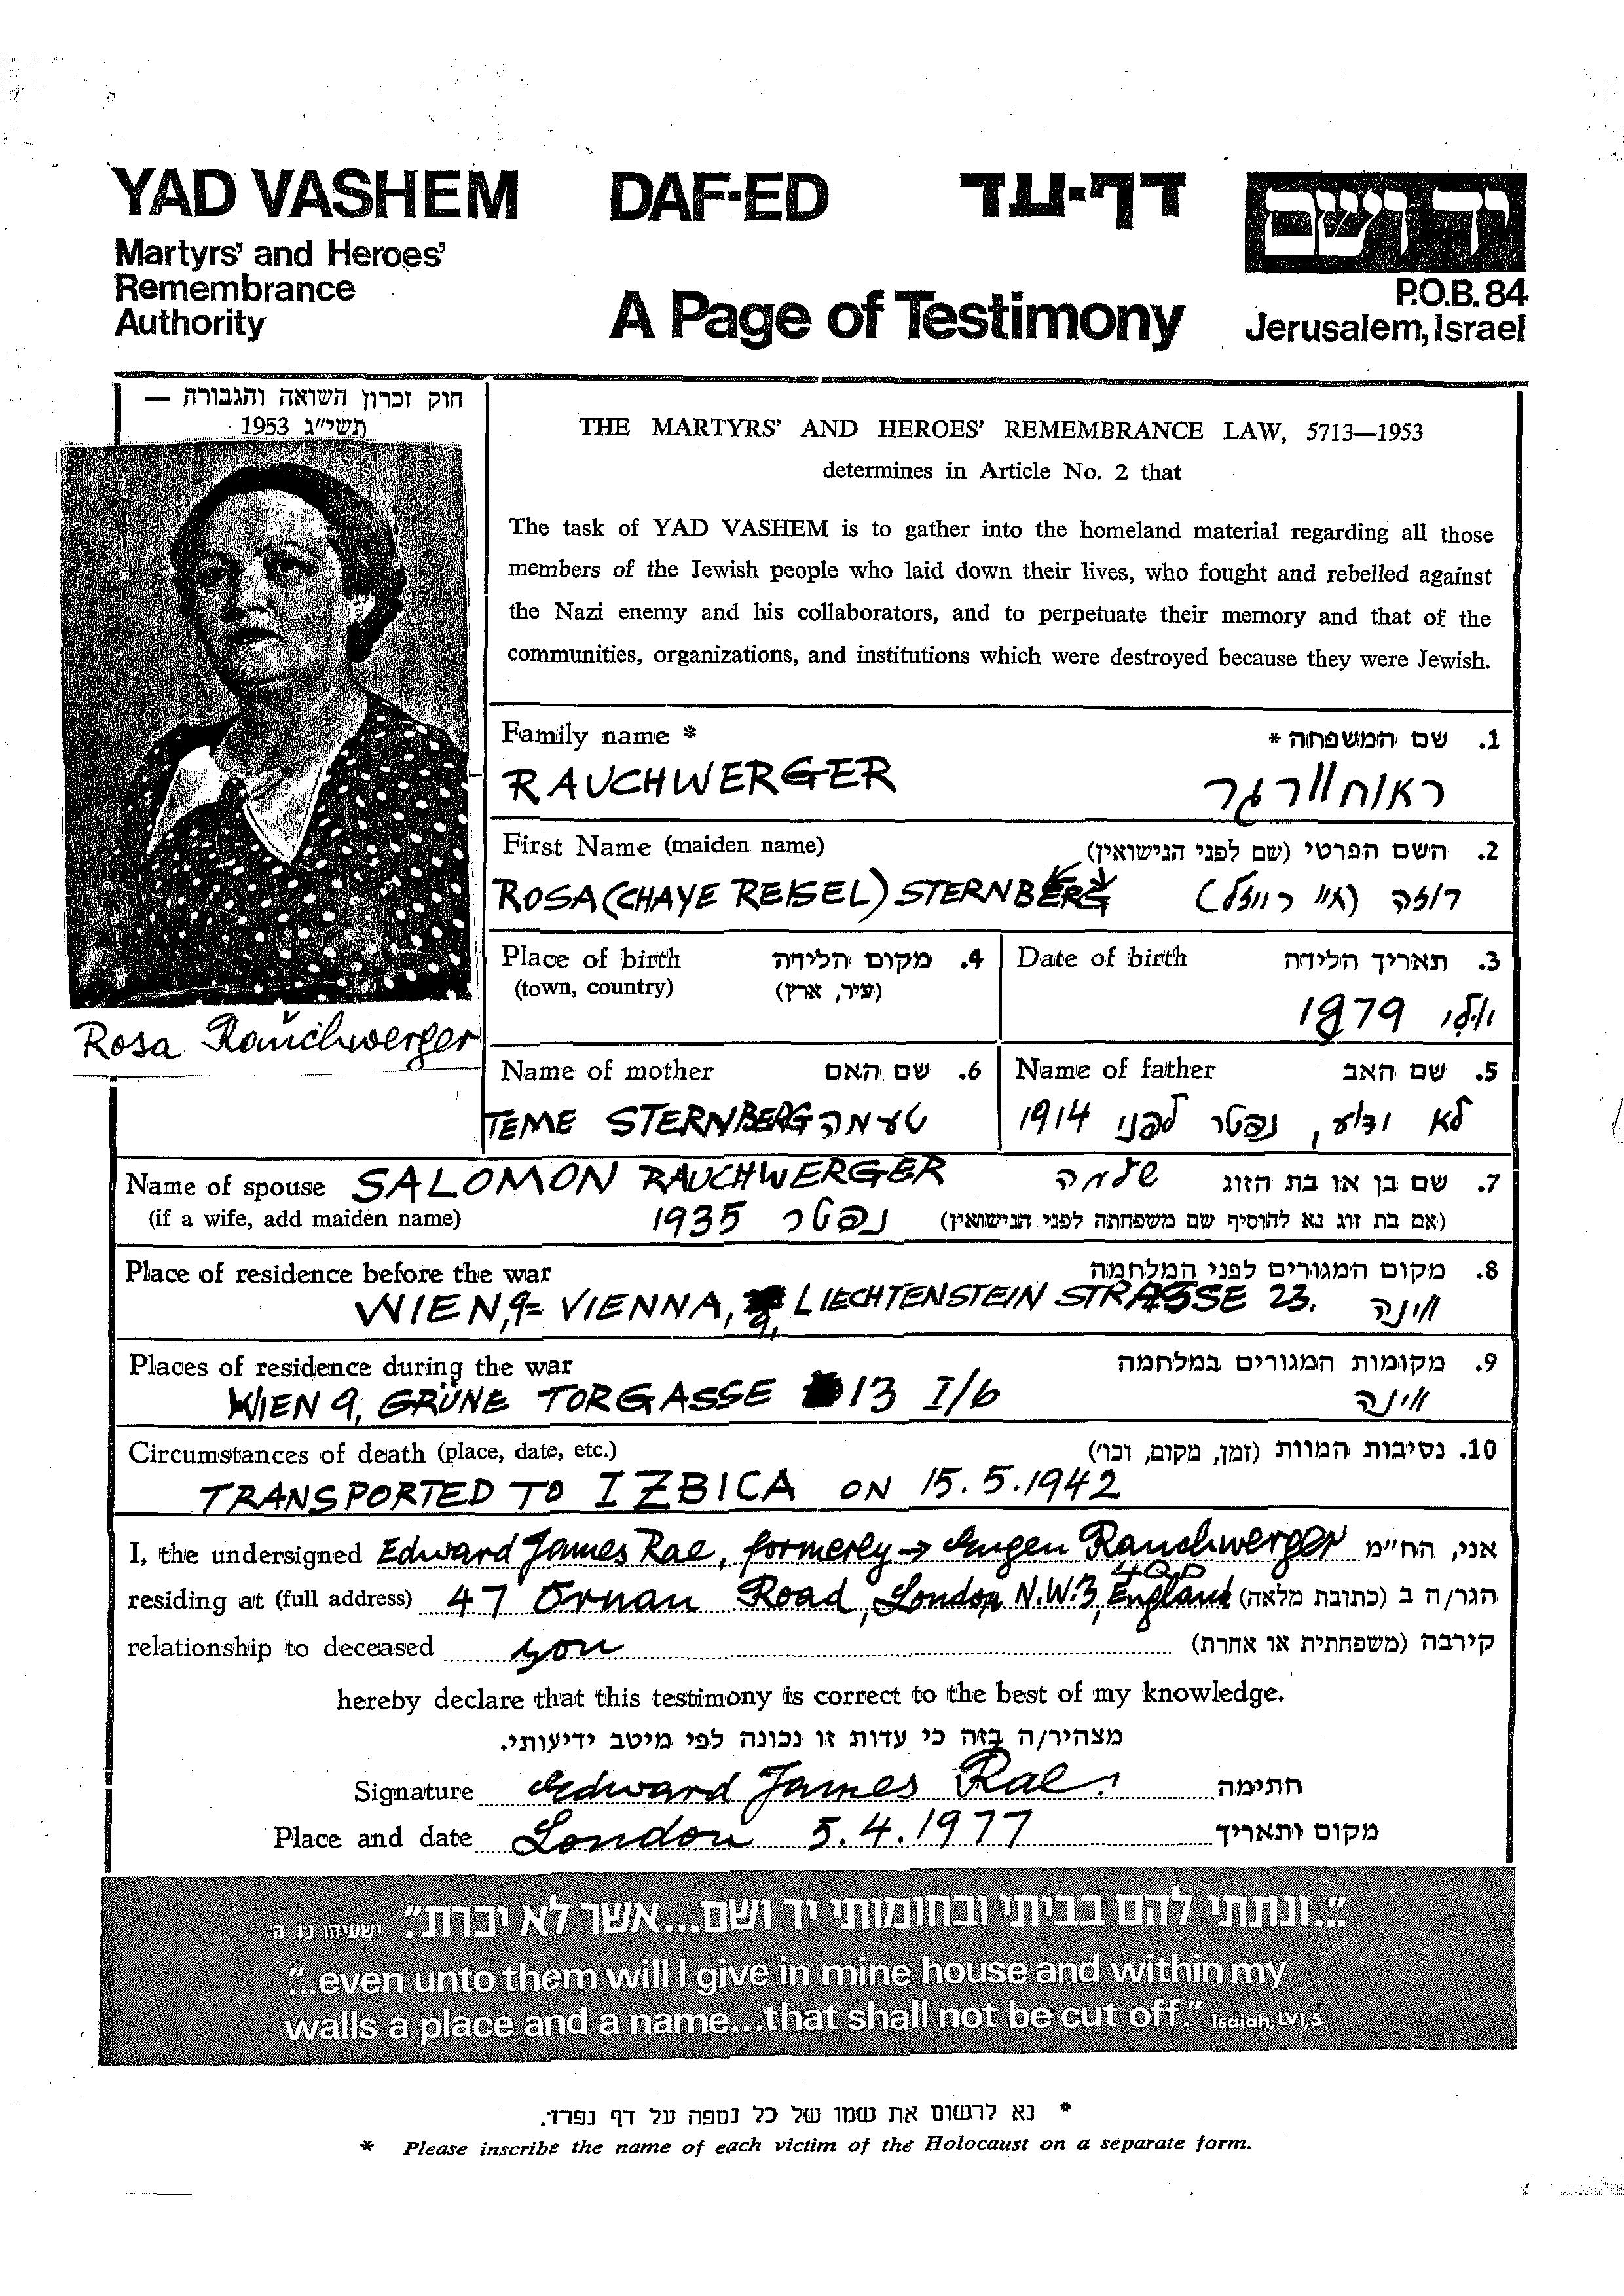 YAD VASHEM DAF-ED דף-עד יד ושם
Martyrs' and Heroes'
Remembrance
Authority
A Page of Testimony
P.O.B. 84
Jerusalem, Israel
חוק זכרון השואה והגבורה —
תשי״ג 1953
THE MARTYRS' AND HEROES' REMEMBRANCE LAW, 5713—1953
determines in Article No. 2 that
The task of YAD VASHEM is to gather into the homeland material regarding all those
members of the Jewish people who laid down their lives, who fought and rebelled against
the Nazi enemy and his collaborators, and to perpetuate their memory and that of the
communities, organizations, and institutions which were destroyed because they were Jewish.
Rosa Rauchwerger
Family name * 1. שם המשפחה *
RAUCHWERGER ראוחוורגר
First Name (maiden name) 2. השם הפרטי (שם לפני הנישואין)
ROSA (CHAYE REISEL) STERNBERG רוזה (חיי רייזל)
Place of birth 4. מקום הלידה
(town, country) (עיר, ארץ)
Date of birth 3. תאריך הלידה
יולי 1879
Name of mother 6. שם האם
TEME STERNBERG טעמה
Name of father 5. שם האב
לא ידוע, נפטר לפני 1914
Name of spouse SALOMON RAUCHWERGER שלמה 7. שם בן או בת הזוג
(if a wife, add maiden name) נפטר 1935 (אם בת זוג נא להוסיף שם משפחתה לפני הנישואין)
Place of residence before the war 8. מקום המגורים לפני המלחמה
WIEN, 9 = VIENNA, 9, LIECHTENSTEIN STRASSE 23. ווינה
Places of residence during the war 9. מקומות המגורים במלחמה
WIEN 9, GRÜNE TORGASSE 13 I/6 ווינה
Circumstances of death (place, date, etc.) 10. נסיבות המוות (זמן, מקום, וכו')
TRANSPORTED TO IZBICA ON 15.5.1942
I, the undersigned Edward James Rae, formerly → Eugen Rauchwerger אני, הח״מ
residing at (full address) 47 Ornan Road, London N.W.3, 4QD England הגר/ה ב (כתובת מלאה)
relationship to deceased son קירבה (משפחתית או אחרת)
hereby declare that this testimony is correct to the best of my knowledge.
מצהיר/ה בזה כי עדות זו נכונה לפי מיטב ידיעותי.
Signature Edward James Rae. חתימה
Place and date London 5.4.1977 מקום ותאריך
"...ונתתי להם בביתי ובחומותי יד ושם...אשר לא יכרת." ישעיהו נו, ה
"...even unto them will I give in mine house and within my
walls a place and a name...that shall not be cut off." Isaiah, LVI, 5
* נא לרשום את שמו של כל נספה על דף נפרד.
* Please inscribe the name of each victim of the Holocaust on a separate form.